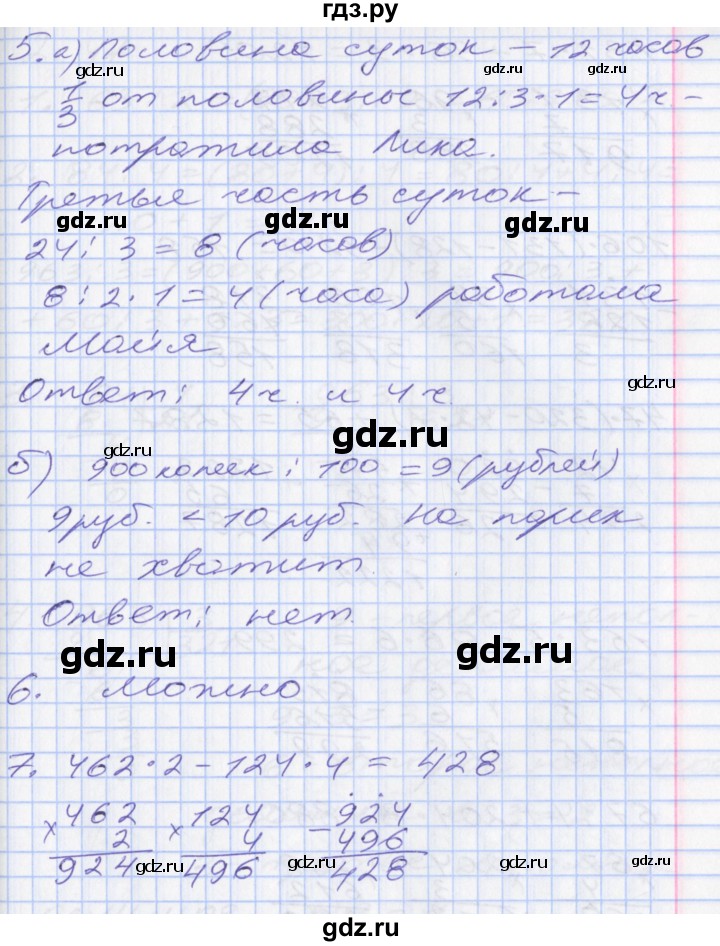 гдз.ру
5. а) Половина суток – 12 часов
1/3 от половины 12:3·1=4ч.-
потратила Лика.
Третья часть суток –
24: 3 = 8 (часов)
8:2·1=4(часа) работала
Майя
Ответ: 4ч. и 4ч.
б) 900 копеек : 100 = 9 (рублей)
9руб. < 10 руб. На
не хватит.
Ответ: нет.
6. Можно
7. 462·2–124·4 = 428
×462 ×124 –924
2 4 496
924 496 428
gdz.ru
gdz.ru
gdz.ru
gdz.ru
gdz.ru
gdz.ru
gdz.ru
gdz.ru
gdz.ru
gdz.ru
gdz.ru
gdz.ru
gdz.ru
gdz.ru